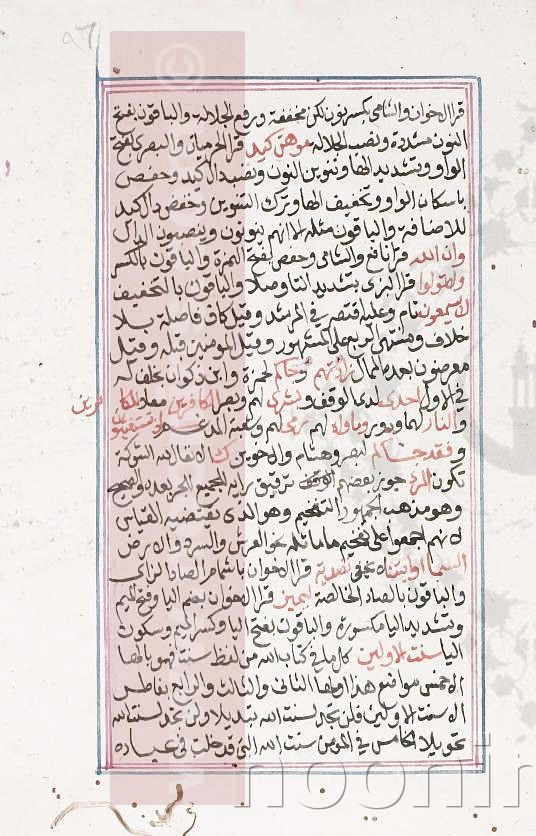 قرا الاخوان والشامى بكسر نون لكن مخففة ورفع الجلالة والباقون بفتح
النون مشددة ونصب الجلالة موهن كيد قرا الحرميان والبصرى بفتح
الواو وتشديد الها وتنوين النون ونصب دال كيد وحفص
باسكان الواو وتخفيف الها وترك التنوين وخفض دال كيد
للاضافة والباقون مثله الا انهم ينونون وينصبون الدال
وان الله قرا نافع والشامى وحفص بفتح الهمزة والباقون بالكسر
ولا تولوا قرا البزى بتشديد التا وصلا والباقون بالتخفيف
لا يسمعون تام وعليه اقتصر فى المرشد وقيل كاف فاصلة بلا
خلاف ومنتهى الربع على المشهور وقيل المومنين قبله وقيل
معرضون بعده الممال زادتهم وجاكم لحمزة وابن ذكوان بخلف له
فى الاول احدى لدى الوقف وبشرى لهم وبصر الكافرين معا وللكافرين
والنار لهما ودورى وماواه لهم رمى لهم وشعبة المدغم اذ تستغيثون
وفقد جاكم لبصر وهشام والاخوين ك الانفال لله الشوكة
تكون المرء جوز بعضهم ترقيق رايه لجميع الجر بعده والصحيح
وهو مذهب الجمهور التفخيم وهو الذى يقتضيه القياس
لانهم اجمعوا على تفخيم ما ماثله نحو العرش والسرد والارض
السما او ايتنا لا يخفى تصدية قرا الاخوان باشمام الصاد الزاى
والباقون بالصاد الخالصة ليميز قرا الاخوان بضم اليا وفتح الميم
وتشديد اليا مكسورة والباقون بفتح اليا وكسر الميم وسكون
اليا سنت الاولين كل ما فى كتاب الله من لفظ سنت فهو بالها
الا خمس مواضع هذا اولها الثانى والثالث والرابع بفاطر
الا سنت الاولين فلن تجد لسنت الله تبديلا ولن تجد لسنت الله
تحويلا الخامس فى المومن سنت الله التى قد خلت فى عباده
noorin